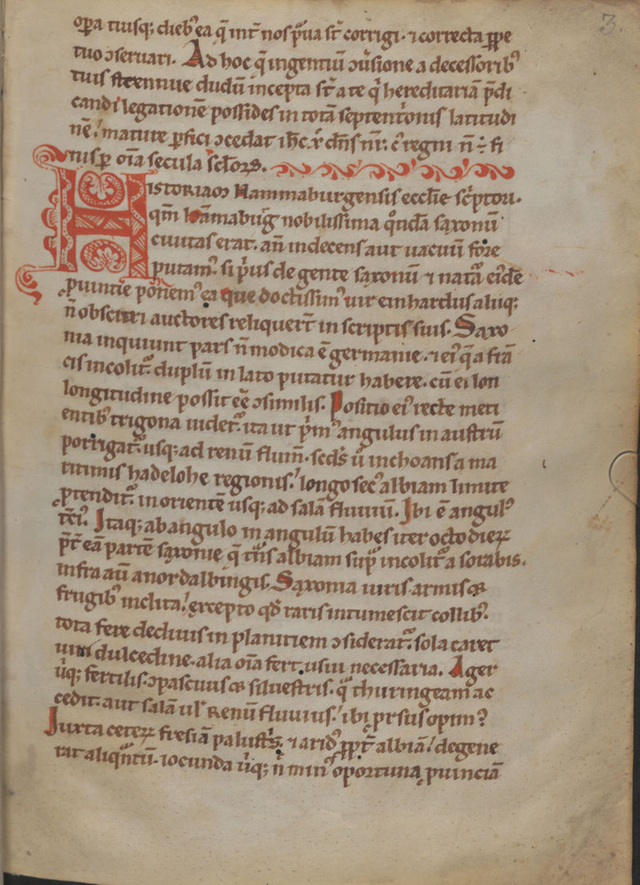 3
opera tuisq; dieb' ea q̄ int̄ nos p̄ua st̄ corrigi · ⁊ correcta ꝑpe
tuo ↄseruari. Ad hoc q̄ ingentiū ↄuersione a decessorib'
tuis strennue dudū incepta st̄ a te q̄ hereditariā p̄di
candi legationē possides in totā septentrionis latitudi
nē! mature ꝑfici ↄcedat ih̄c xp̄c dn̄s nr̄. c' regni n̄ ÷ fi
nis ꝑ oīa secula sc̄lorꝝ.
Historiam Hammaburgensis ecclīe sc̄ptori·
qm̄ hāmabug nobilissima q̄ndā saxonū
ciuitas erat. an̄ indecens aut uacuū fore
putam'. si p̄us de gente saxonū ⁊ natā eide
ꝓuintie ponem' ea que doctissim' uir einhardus aliiq;
n̄ obscuri auctores reliquer̄t in scriptis suis. Saxo
nia inquiunt pars n̄ modica ē germanie · ⁊ ei' q̄ a frā
cis incolit̄. duplū in lato putatur habere. cū ei lon
longitudine possit ēē ↄsimilis. Positio ei' recte meti
entib' trigona uidet̄. ita ut p̄m' angulus in austrū
porrigat̄. usq; ad renū flum̄. sc̄ds ū inchoans a ma
ritimis hadelohe regionis! longo sec' albiam limite
ꝓtendit̄. in orientē usq; ad salā fluuiū. Ibi ē angul'
t̄ci'. Itaq; ab angulo in angulū habes iter octo dierꝝ
p̄t̄ eā partē saxonie q̄ t̄ns albiam sup̄i' incolit̄ a sorabis.
infra aū a nordalbingis. Saxonia uiris armisq;
frugib' inclita! excepto qd̄ raris intumescit collib'.
tota fere decliuis in planitiem ↄsiderat̄. sola caret
uini dulcedine. alia oīa fert usui necessaria. Ager
ūq; fertilis. ↄpascuus q; siluestris. q̄ thuringeam ac
cedit. aut salā ul' Renū fluuius! ibi prsus opim'?
Iuxta ceterꝝ fresiā palustris. ⁊ arid' ꝓpt̄ albiā! degene
rat aliq̄ntū. iocunda ūq; n̄ min' oportuna ꝓuinciā